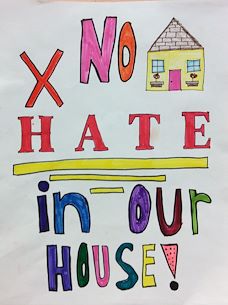 X NO
HATE
in OUR
HOUSE!